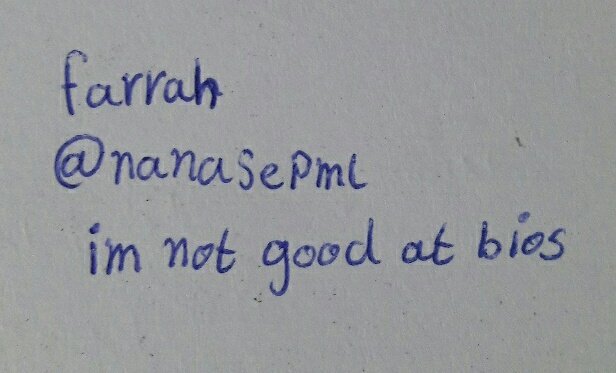 farrah
@nanasepml
im not good at bios